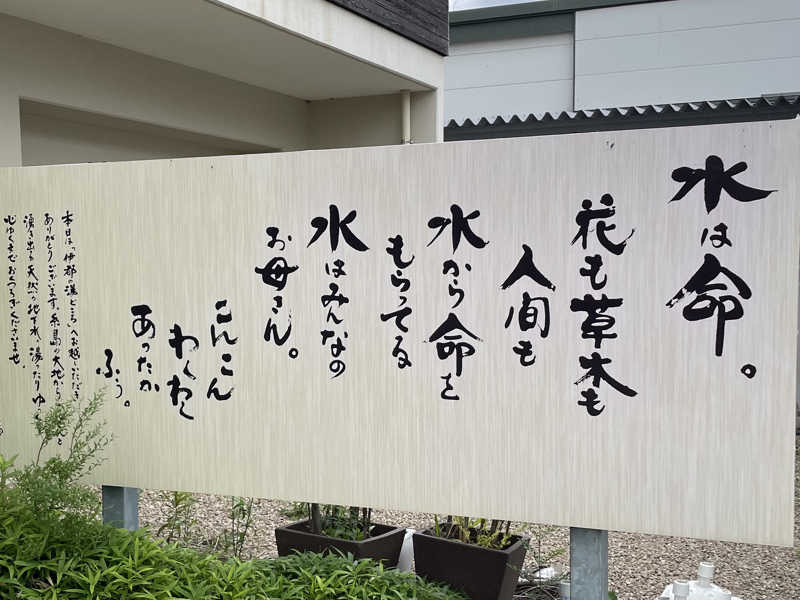 水は命。
花も草木も
人間も
水から命を
もらってる
水はみんなの
お母さん。
こんこん
わくわく
あったか
ふぅ。
本日は「伊都の湯どころ」へお越しいただき
ありがとうございます。糸島の大地から
湧き出る天然の地下水、湯ったりゆっ
心ゆくまでおくつろぎくださいませ。